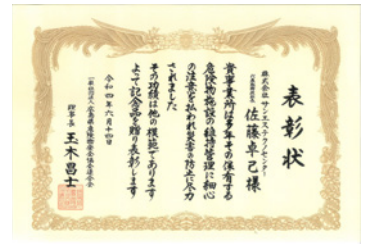 表彰状
株式会社 サンエス・テクノセンター
佐藤卓己様
貴事業所は多年その保有する
危険物施設の維持管理に細心
の注意を払われ災害の防止に尽力
されました
その功績は他の模範であります
よって記念品を贈り表彰します
令和四年六月十四日
一般社団法人広島県危険物安全協会連合会
理事長 玉木昌士